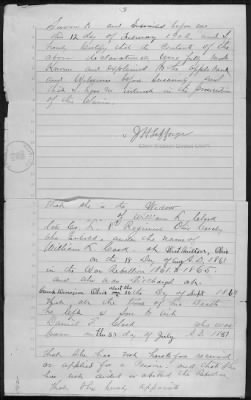 3
Sworn to and subscribed before me
this 12 day of February 1902 and I
hereby certify that the contents of the
above declaration were fully made
known and explained to the applicant
and witnesses before swearing and
that I have no interest in the prosecution
of this claim.
That she is the Widow
of William R. Clark
Regiment Ohio
who enlisted under the name of
William R. Clark at Ohio
on the 18 day of Aug A.D. 1861
in the War Rebellion 1861 to 1865.
and who was discharged at
Ohio on the day of Sept 1864
That at the time of his death
he left a son to wit
Daniel F. Clark who was
born on the day of July A.D. 1881
That she has not heretofore received
or applied for a Pension and that she
has not aided or abetted the Rebellion
That she hereby appoints